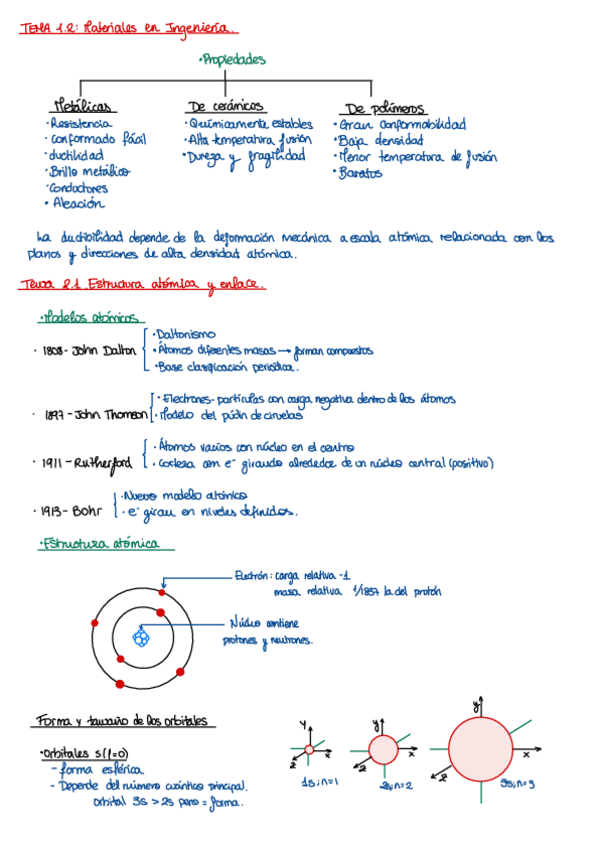 TEMA 1.2: Materiales en Ingeniería.
·Propiedades
Metálicas
·Resistencia
·Conformado fácil
·ductilidad
·Brillo metálico
·Conductores
·Aleación
De cerámicos
·Químicamente estables
·Alta temperatura fusión
·Dureza y fragilidad
De polímeros
·Gran conformabilidad
·Baja densidad
·Menor temperatura de fusión
·Baratos
La ductibilidad depende de la deformación mecánica a escala atómica relacionada con los
planos y direcciones de alta densidad atómica.
Tema 2.1. Estructura atómica y enlace.
·Modelos atómicos
· 1808- John Dalton
·Daltonismo
·Átomos diferentes masas → forman compuestos
·Base clasificación periódica.
· 1897 - John Thomson
·Electrones- partículas con carga negativa dentro de los átomos
·Modelo del púdin de ciruelas
· 1911 - Rutherford
·Átomos vacíos con núcleo en el centro
·Corteza com e⁻ girando alrededor de un núcleo central (positivo)
· 1913- Bohr
·Nuevo modelo atómico
·e⁻ giran en niveles definidos.
·Estructura atómica
Electrón: carga relativa -1
masa relativa 1/1837 la del protón
Núcleo contiene
protones y neutrones.
Forma y tamaño de los orbitales
·Orbitales s (l=0)
- forma esférica
- Depende del número cuántico principal.
orbital 3s > 2s pero = forma.
y
x
z
1s; n=1
y
x
z
2s; n=2
y
x
z
3s; n=3